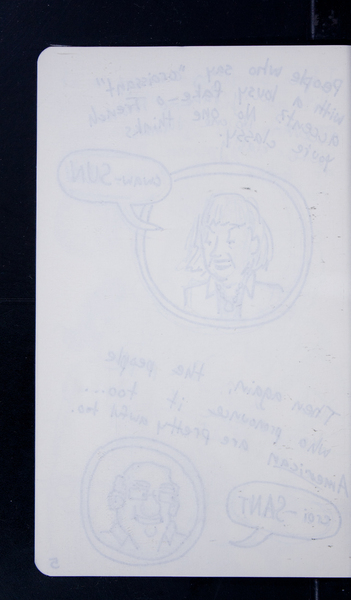 People who say "croissant"
with a lousy fake-o French
accent. No one thinks
you're classy.
SUN
Then again, the people
who pronounce it too...
American are pretty much too.
SANT
5